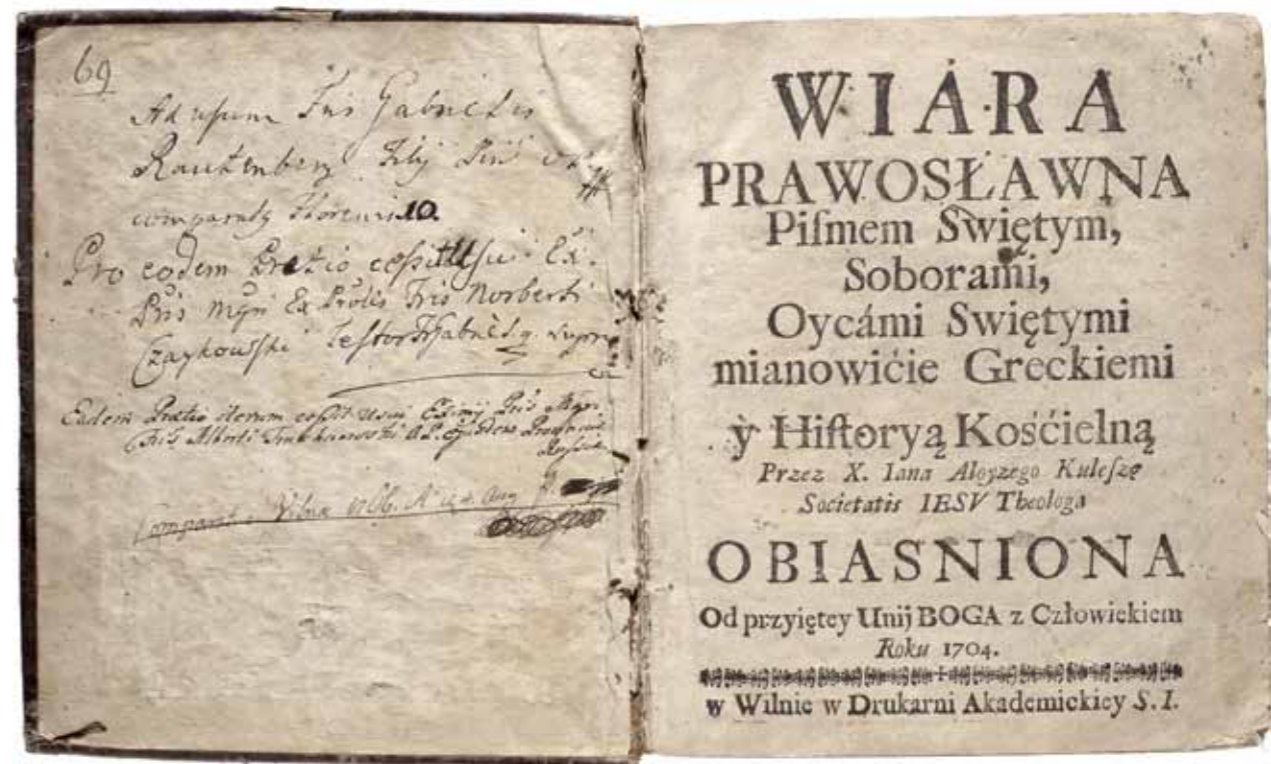 69
Ad usum Fris Gabrielis
Rautenberg
comparatus 10
Pro eodem Pretio cessit usui Ex.
Pris Mgri Ex Prölis Fris Norberti
Czaykowski Testor
Eadem Pretio iterum cessit usui Eximij Pris Mgri
Fris Alberti
Comparat Vilnæ 1766. A 24 Aug
WIARA
PRAWOSŁAWNA
Piſmem Swiętym,
Soborami,
Oycámi Swiętymi
mianowićie Greckiemi
ỳ Hiſtoryą Kośćielną
Przez X. Iana Aloyzego Kuleſzę
Societatis IESV Theologa
OBIASNIONA
Od przyiętey Unij BOGA z Człowiekiem
Roku 1704.
w Wilnie w Drukarni Akademickiey S. I.